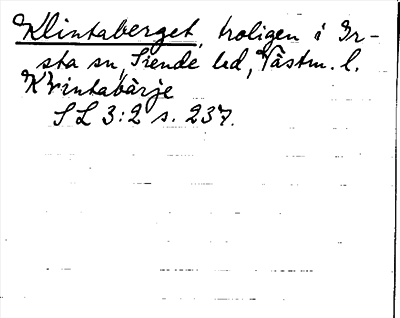 Klintaberget, troligen i Ir-
sta sn, Siende hd, Västm. l.
Krintabärje
SL 3:2 s. 237.